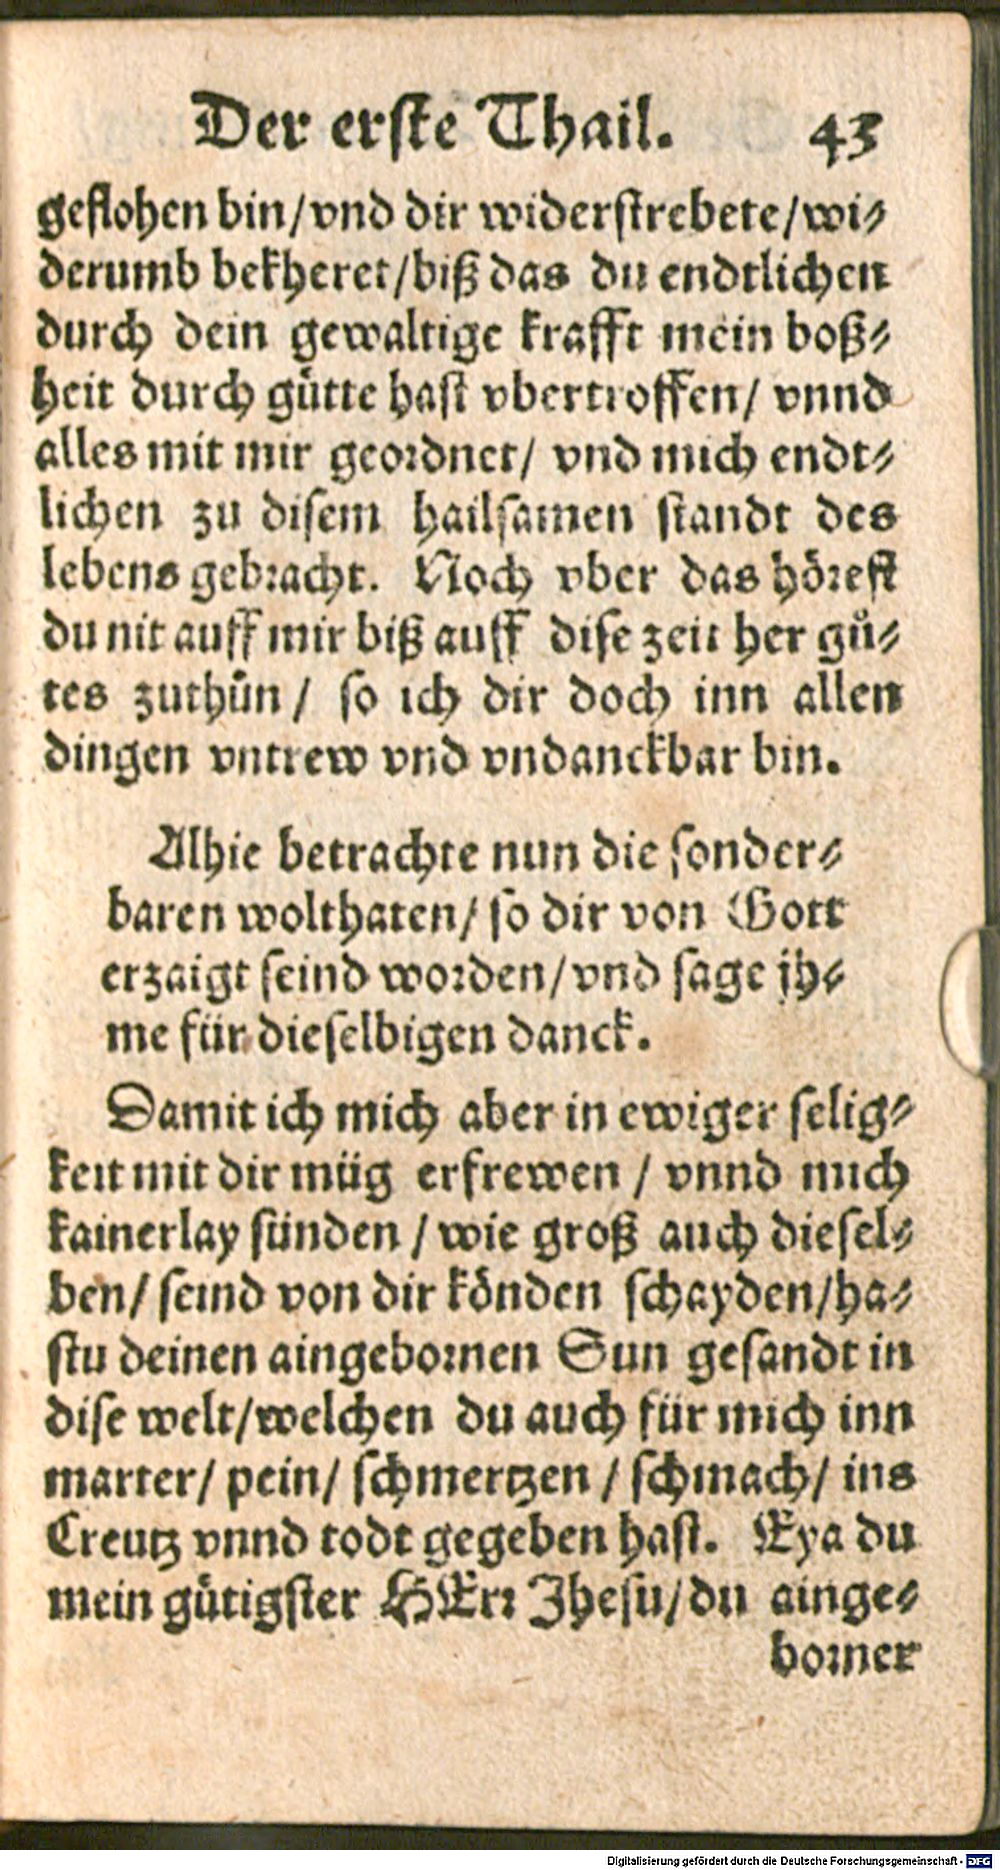 Der erste Thail. 43
geflohen bin/vnd dir widerstrebete/wi-
derumb bekheret/biß das du endtlichen
durch dein gewaltige krafft mein boß-
heit durch gütte hast vbertroffen/ vnnd
alles mit mir geordnet/ vnd mich endt-
lichen zu disem hailsamen standt des
lebens gebracht. Noch vber das hörest
du nit auff mir biß auff dise zeit her gů-
tes zuthůn/ so ich dir doch inn allen
dingen vntrew vnd vndanckbar bin.
Alhie betrachte nun die sonder-
baren wolthaten/ so dir von Gott
erzaigt seind worden/vnd sage jh-
me für dieselbigen danck.
Damit ich mich aber in ewiger selig-
keit mit dir müg erfrewen / vnnd mich
kainerlay sünden / wie groß auch diesel-
ben/ seind von dir könden schayden/ha-
stu deinen aingebornen Sun gesandt in
dise welt/welchen du auch für mich inn
marter/ pein/ schmertzen / schmach/ ins
Creutz vnnd todt gegeben hast. Eya du
mein gütigster HErr Jhesu/du ainge-
borner
Digitalisierung gefördert durch die Deutsche Forschungsgemeinschaft - DFG